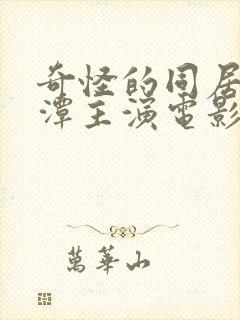 奇怪的同居
潭主演電影
萬華山